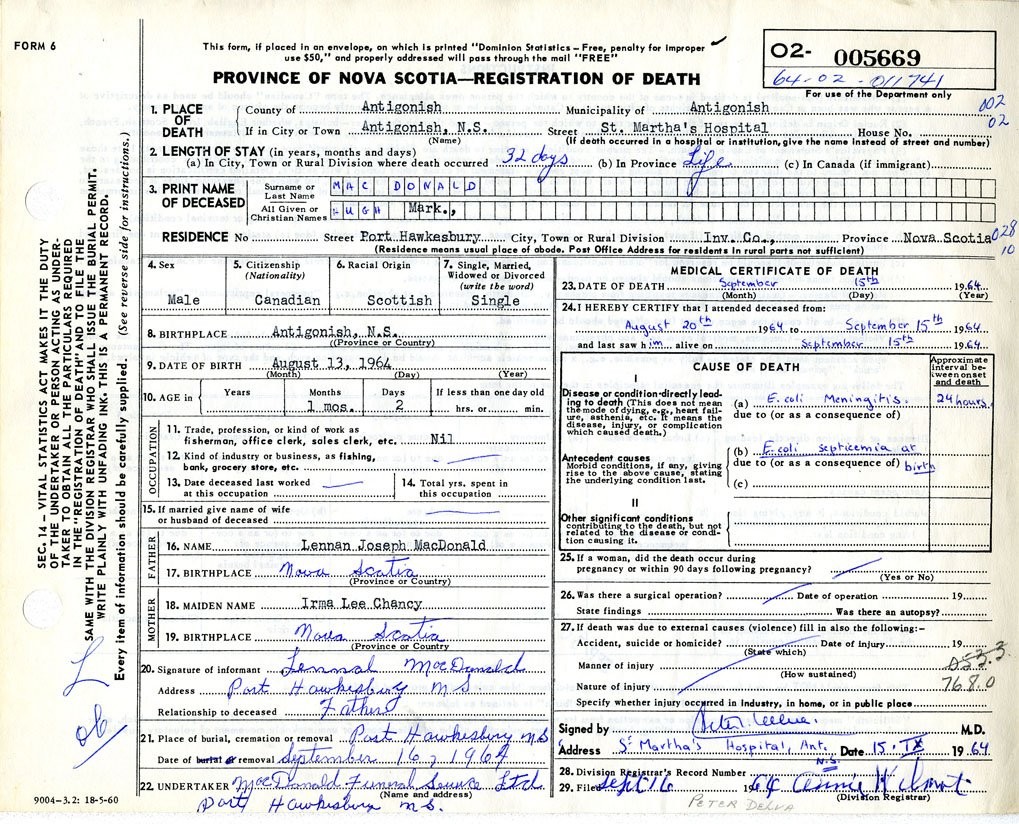 FORM 6
This form, if placed in an envelope, on which is printed "Dominion Statistics – Free, penalty for improper
use $50," and properly addressed will pass through the mail "FREE"
PROVINCE OF NOVA SCOTIA—REGISTRATION OF DEATH
O2- 005669
64-02-011741
For use of the Department only
002
02
1. PLACE OF DEATH
County of Antigonish Municipality of Antigonish
If in City or Town Antigonish, N.S. Street St. Martha's Hospital House No.
(Name) (If death occurred in a hospital or institution, give name instead of street and number)
2. LENGTH OF STAY (in years, months and days)
(a) In City, Town or Rural Division where death occurred 32 days (b) In Province Life (c) In Canada (if immigrant)
3. PRINT NAME OF DECEASED
Surname or Last Name MAC DONALD
All Given or Christian Names HUGH Mark.,
RESIDENCE No Street Port Hawkesbury City, Town or Rural Division Inv. Co., Province Nova Scotia
028
10
(Residence means usual place of abode. Post Office Address for residents in rural parts not sufficient)
4. Sex
Male
5. Citizenship
(Nationality)
Canadian
6. Racial Origin
Scottish
7. Single, Married,
Widowed or Divorced
(write the word)
Single
8. BIRTHPLACE Antigonish, N.S.
(Province or Country)
9. DATE OF BIRTH August 13, 1964
(Month) (Day) (Year)
10. AGE in Years Months Days If less than one day old
1 mos. 2 hrs. or min.
OCCUPATION
11. Trade, profession, or kind of work as
fisherman, office clerk, sales clerk, etc. Nil
12. Kind of industry or business, as fishing,
bank, grocery store, etc.
13. Date deceased last worked
at this occupation
14. Total yrs. spent in
this occupation
15. If married give name of wife
or husband of deceased
FATHER
16. NAME Lennan Joseph MacDonald
17. BIRTHPLACE Nova Scotia
(Province or Country)
MOTHER
18. MAIDEN NAME Irma Lee Chancy
19. BIRTHPLACE Nova Scotia
(Province or Country
20. Signature of informant Lennal MacDonald
Address Port Hawkesbury NS
Relationship to deceased Father
21. Place of burial, cremation or removal Port Hawkesbury NS
Date of burial or removal September 16, 1964
22. UNDERTAKER MacDonald Funeral Service Ltd.
(Name and address)
Port Hawkesbury N.S.
9004–3.2: 18-5-60
MEDICAL CERTIFICATE OF DEATH
23. DATE OF DEATH September 15th 1964
(Month) (Day) (Year)
24. I HEREBY CERTIFY that I attended deceased from:
August 20th 1964 to September 15th 1964
and last saw him alive on September 15th 1964
CAUSE OF DEATH
Approximate
interval be-
tween onset
and death
I
Disease or condition directly lead-
ing to death (This does not mean
the mode of dying, e.g., heart fail-
ure, asthenia, etc. It means the
disease, injury, or complication
which caused death.)
(a) E.coli Meningitis. 24 hours.
due to (or as a consequence of)
Antecedent causes
Morbid conditions, if any, giving
rise to the above cause, stating
the underlying condition last.
(b) E.coli Septicemia at
due to (or as a consequence of) birth
(c)
II
Other significant conditions
contributing to the death, but not
related to the disease or condi-
tion causing it.
25. If a woman, did the death occur during
pregnancy or within 90 days following pregnancy?
(Yes or No)
26. Was there a surgical operation? Date of operation 19
State findings Was there an autopsy?
27. If death was due to external causes (violence) fill in also the following:-
Accident, suicide or homicide? Date of injury 19
(State which)
053.3
Manner of injury
(How sustained)
768.0
Nature of injury
Specify whether injury occurred in industry, in home, or in public place
Signed by M.D.
Address St Martha's Hospital, Ant. N.S. Date 15-IX 1964
28. Division Registrar's Record Number
29. Filed Sept 16 1964 Annie Wilmot
(Division Registrar)
PETER DELVA
SEC. 14 – VITAL STATISTICS ACT MAKES IT THE DUTY
OF THE UNDERTAKER OR PERSON ACTING AS UNDER-
TAKER TO OBTAIN ALL THE PARTICULARS REQUIRED
IN THE "REGISTRATION OF DEATH" AND TO FILE THE
SAME WITH THE DIVISION REGISTRAR WHO SHALL ISSUE THE BURIAL PERMIT.
WRITE PLAINLY WITH UNFADING INK. THIS IS A PERMANENT RECORD.
Every item of information should be carefully supplied. (See reverse side for instructions.)